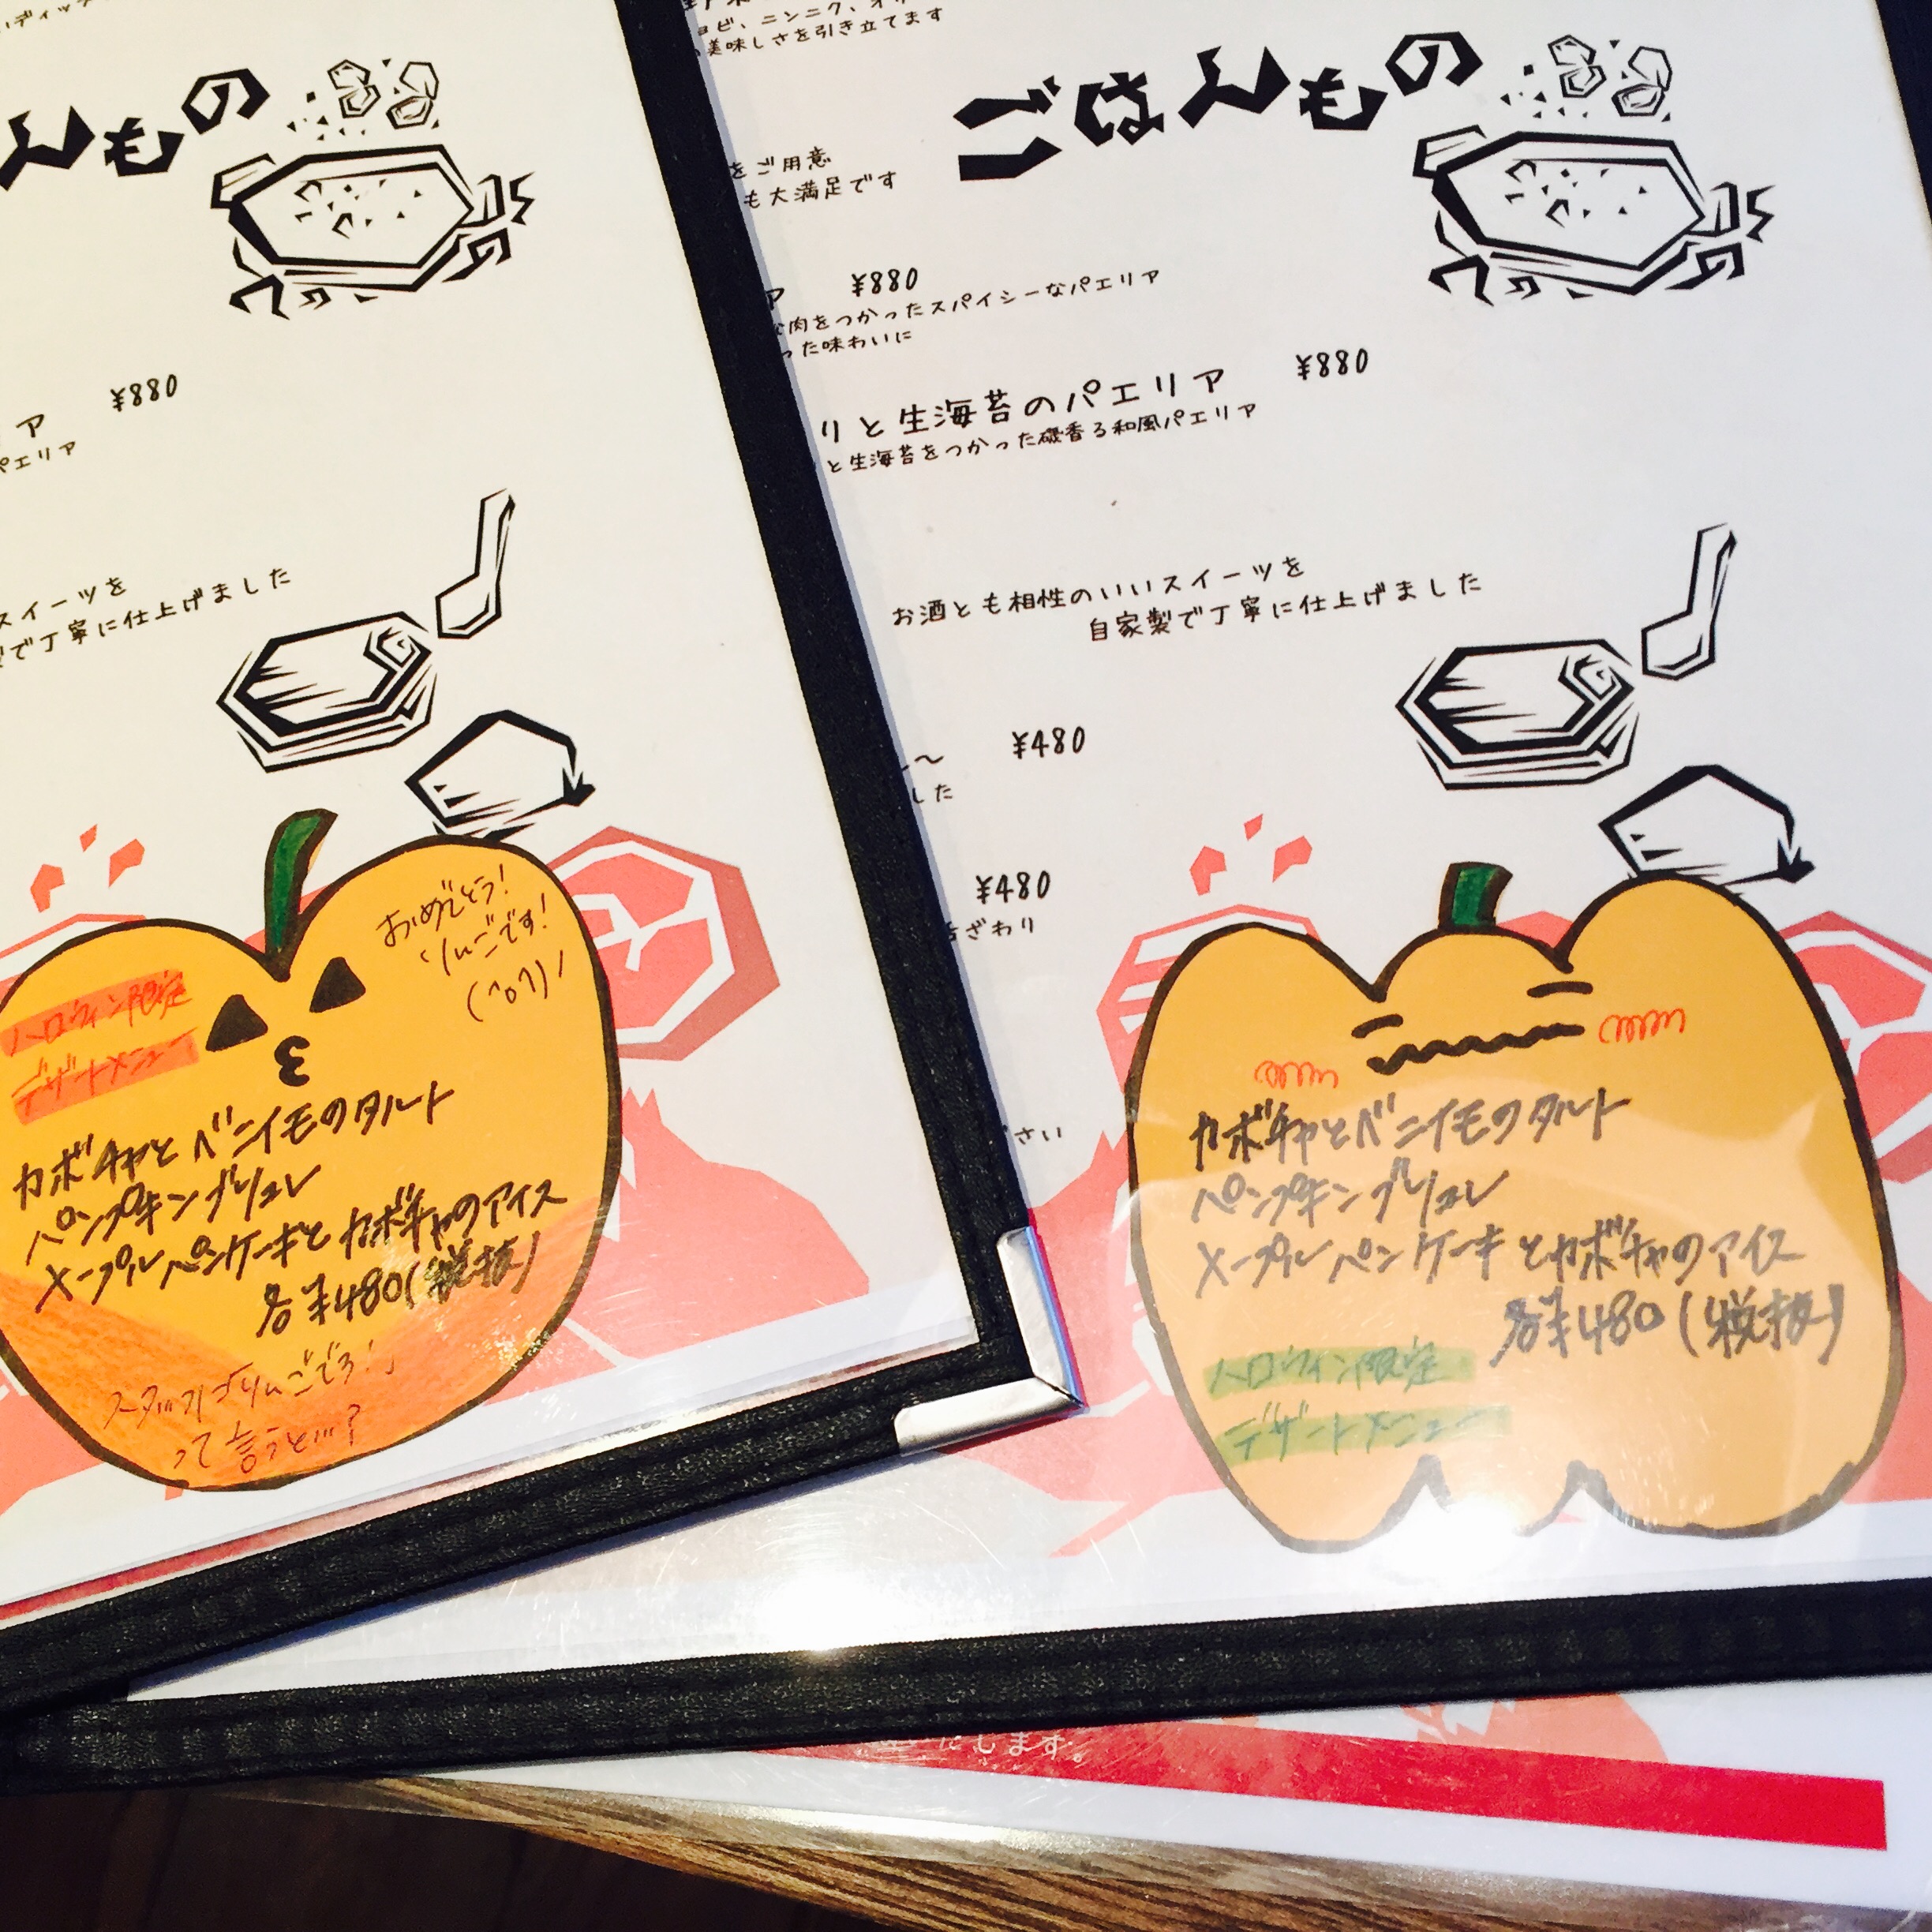 んもの
¥880
ア
パエリア
スイーツを
で丁寧に仕上げました
おめでとう!
りんごです!
(^o^)/
ハロウィン限定
デザートメニュー
カボチャとベニイモのタルト
パンプキンブリュレ
メープルパンケーキとカボチャのアイス
各¥480(税抜)
スタッフに「りんごでろ!」
って言うと…?
ョビ、ニンニク、オリ
美味しさを引き立てます
ごはんもの
をご用意
も大満足です
ア ¥880
な肉をつかったスパイシーなパエリア
った味わいに
りと生海苔のパエリア ¥880
と生海苔をつかった磯香る和風パエリア
お酒とも相性のいいスイーツを
自家製で丁寧に仕上げました
～ ¥480
した
¥480
ざわり
さい
カボチャとベニイモのタルト
パンプキンブリュレ
メープルパンケーキとカボチャのアイス
各¥480(税抜)
ハロウィン限定
デザートメニュー
たします。